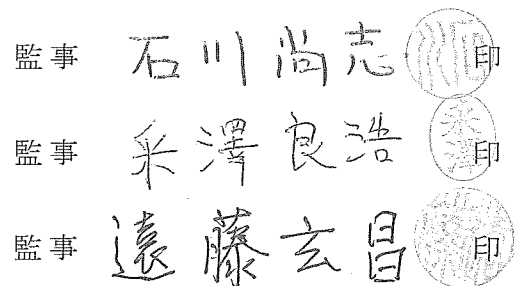 監事 石川尚志 印
監事 采澤良浩 印
監事 遠藤玄昌 印